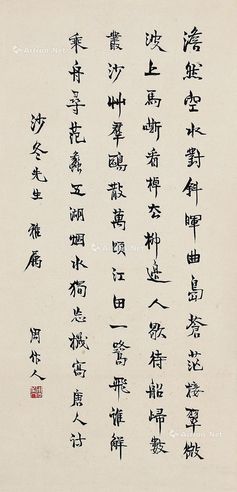 澹然空水對斜暉曲島蒼茫接翠微
波上馬嘶看棹去柳邊人歇待船歸數
叢沙艸羣鷗散萬頃江田一鷺飛惟解
乘舟尋范蠡五湖烟水獨忘機寫唐人诗
沙冬先生 雅屬
周作人